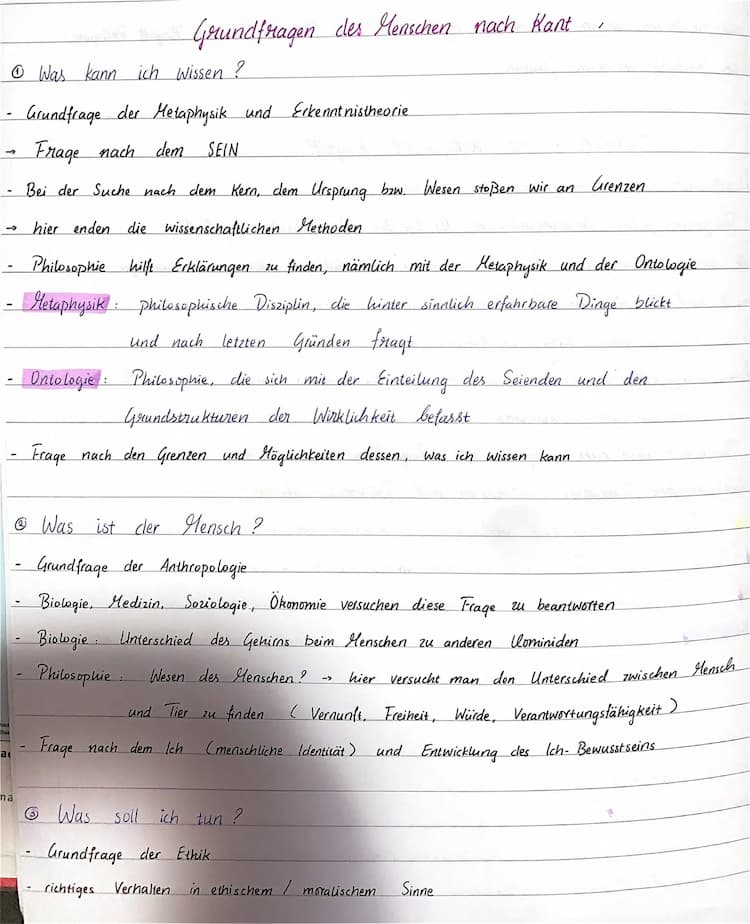 Grundfragen des Menschen nach Kant
① Was kann ich wissen?
- Grundfrage der Metaphysik und Erkenntnistheorie
→ Frage nach dem SEIN
- Bei der Suche nach dem Kern, dem Ursprung bzw. Wesen stoßen wir an Grenzen
→ hier enden die wissenschaftlichen Methoden
- Philosophie hilft Erklärungen zu finden, nämlich mit der Metaphysik und der Ontologie
- Metaphysik: philosophische Disziplin, die hinter sinnlich erfahrbare Dinge blickt
und nach letzten Gründen fragt
- Ontologie: Philosophie, die sich mit der Einteilung des Seienden und den
Grundstrukturen der Wirklichkeit befasst
- Frage nach den Grenzen und Möglichkeiten dessen, was ich wissen kann
② Was ist der Mensch?
- Grundfrage der Anthropologie
- Biologie, Medizin, Soziologie, Ökonomie versuchen diese Frage zu beantworten
- Biologie: Unterschied des Gehirns beim Menschen zu anderen Hominiden
- Philosophie: Wesen des Menschen? → hier versucht man den Unterschied zwischen Mensch
und Tier zu finden (Vernunft, Freiheit, Würde, Verantwortungsfähigkeit)
- Frage nach dem Ich (menschliche Identität) und Entwicklung des Ich-Bewusstseins
③ Was soll ich tun?
- Grundfrage der Ethik
- richtiges Verhalten in ethischem / moralischem Sinne